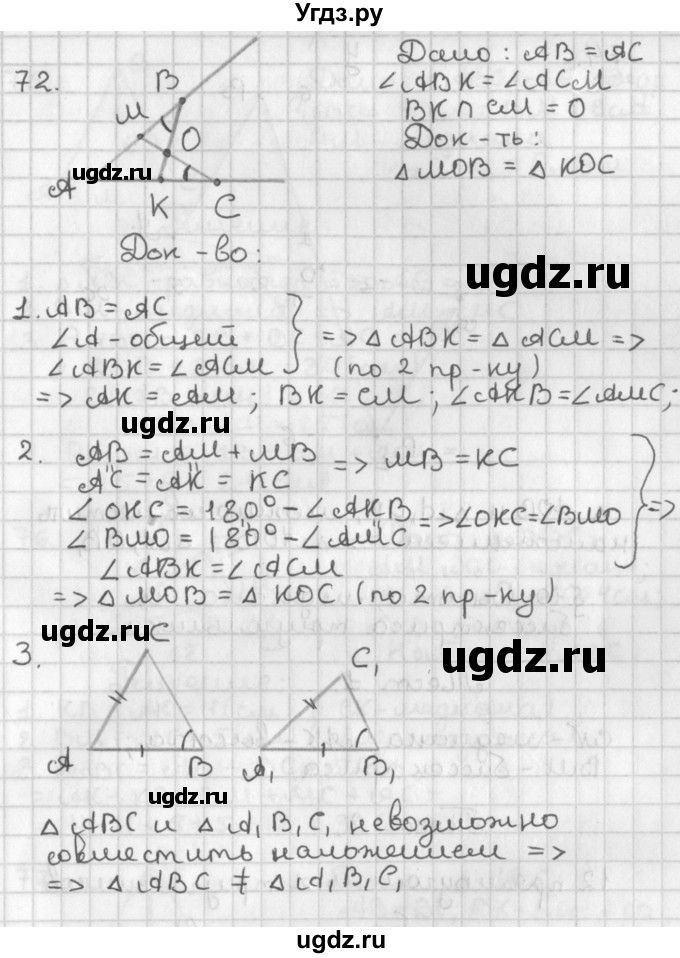 Угдз.ру
72.
B
M
O
A
K
C
Дано: AB = AC
∠ABK = ∠ACM
BK ∩ CM = O
Док-ть:
△MOB = △KOC
ugdz.ru
Док-во:
ugdz.ru
1. AB = AC
∠A - общий } => △ABK = △ACM =>
∠ABK = ∠ACM (по 2 пр-ку)
=> AK = AM; BK = CM; ∠AKB = ∠AMC;
ugdz.ru
2. AB = AM + MB
AC = AK = KC => MB = KC
∠OKC = 180° - ∠AKB
∠BMO = 180° - ∠AMC => ∠OKC = ∠BMO } =>
∠ABK = ∠ACM
=> △MOB = △KOC (по 2 пр-ку)
ugdz.ru
ugdz.ru
3.
C
A
B
C₁
A₁
B₁
ugdz.ru
△ABC и △A₁B₁C₁ невозможно
совместить наложением =>
=> △ABC ≠ △A₁B₁C₁
ugdz.ru